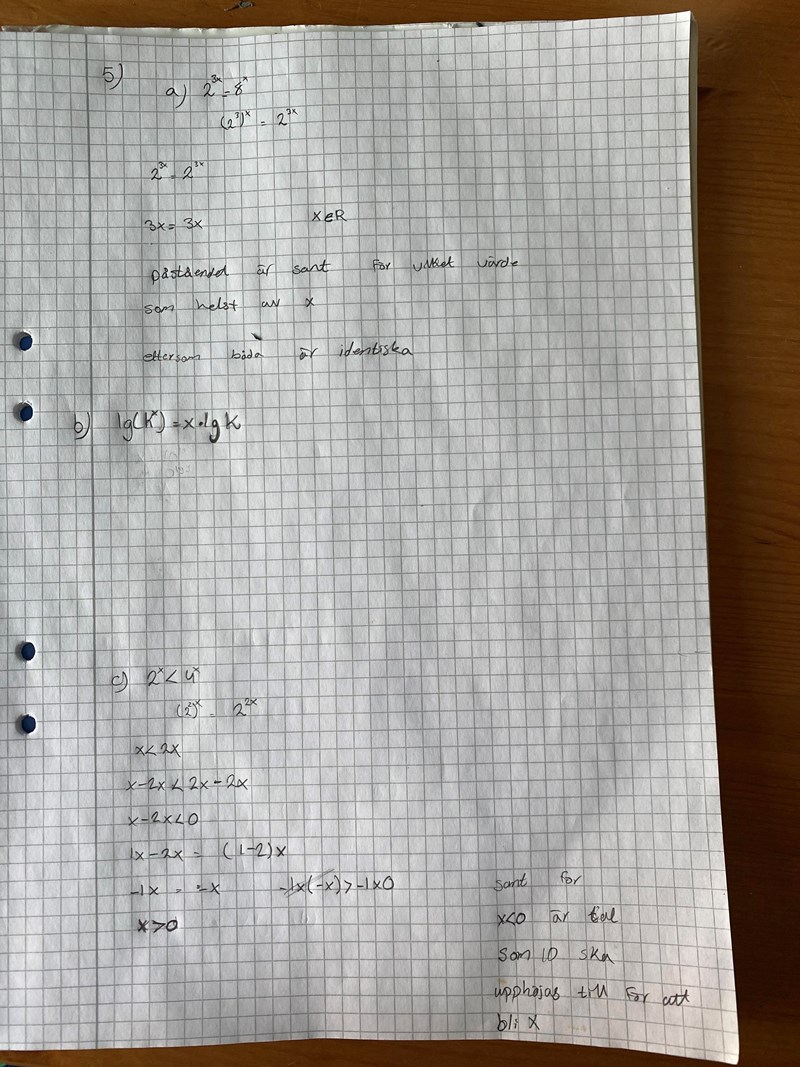 5)
a) 2^3x = 8^x
(2^3)^x = 2^3x
2^3x = 2^3x
3x = 3x x∈R
påståendet är sant för vilket värde
som helst av x
eftersom båda är identiska
b) lg(k^x) = x·lg k
c) 2^x < 4^x
(2^2)^x = 2^2x
x<2x
x-2x<2x-2x
x-2x<0
1x-2x = (1-2)x
-1x = -x -1x(-x)>-1x0
x>0
sant för
x<0 är tal
som 10 ska
upphöjas till för att
bli x